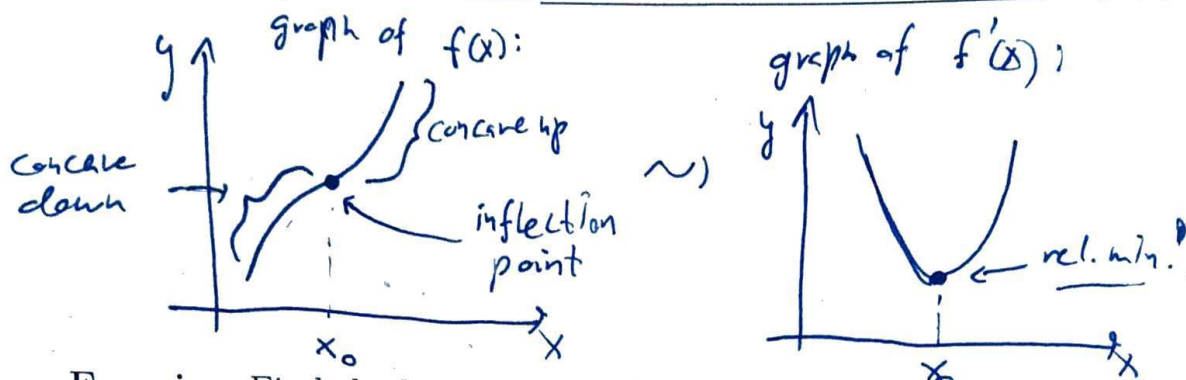 graph of f(x):
y
concave up
concave down
inflection point
x₀
x
~)
graph of f'(x);
y
rel. min.!
x